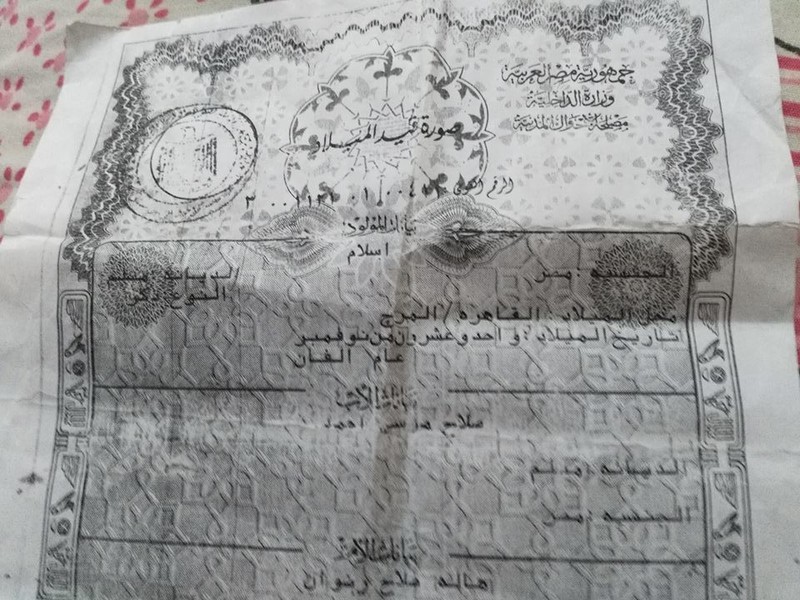 جمهورية مصر العربية
وزارة الداخلية
مصلحة الأحوال المدنية
صورة قيد الميلاد
الرقم القومى
بيانات المولود:
اسلام
الجنسية: مصر
الديانة: مسلم
النوع: ذكر
محل الميلاد: القاهرة/المرج
تاريخ الميلاد: واحد وعشرون من نوفمبر
عام الفان
بيانات الأب
صلاح مرسى احمد
الديانة: مسلم
الجنسية: مصر
بيانات الأم
صلاح رضوان